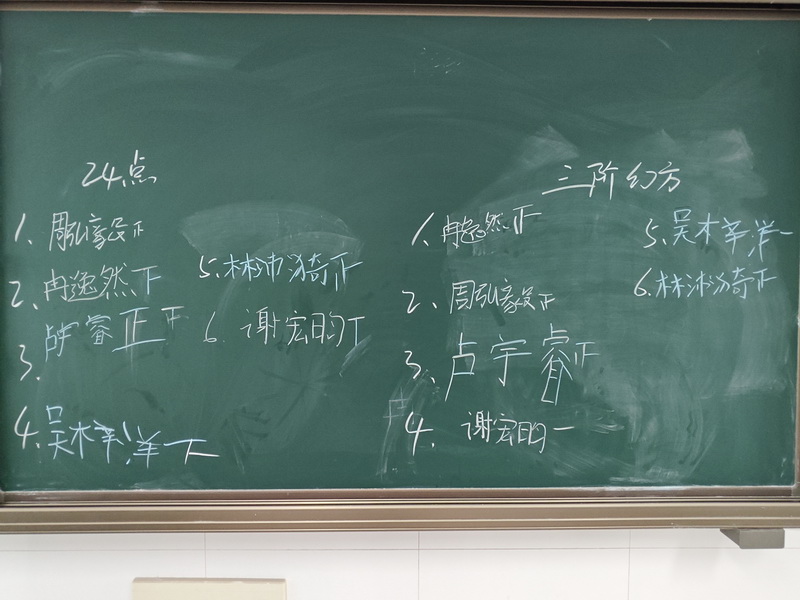 24点
1. 周弘豪 正
2. 冉逸然 下
3. 卢宇睿 正 下
4. 吴木 洋 丅
5. 林沛漪 正
6. 谢宏昀 丅
三阶幻方
1. 冉逸然 正
2. 周弘豪 正
3. 卢宇睿 正
4. 谢宏昀 一
5. 吴木 洋 一
6. 林沛漪 正